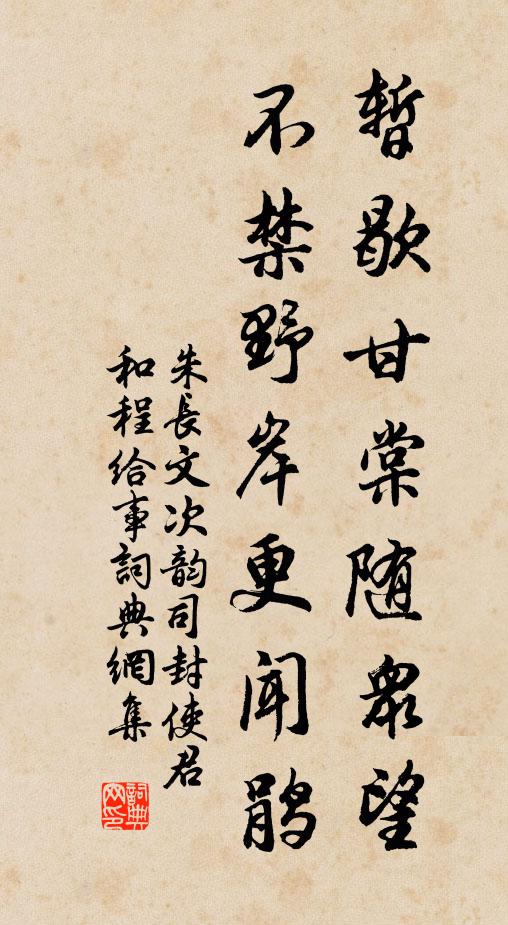 暫歇甘棠随衆望
不禁野岸更聞鹃
朱長文次韵司封使君
和程给事詞典網集
詞典网印